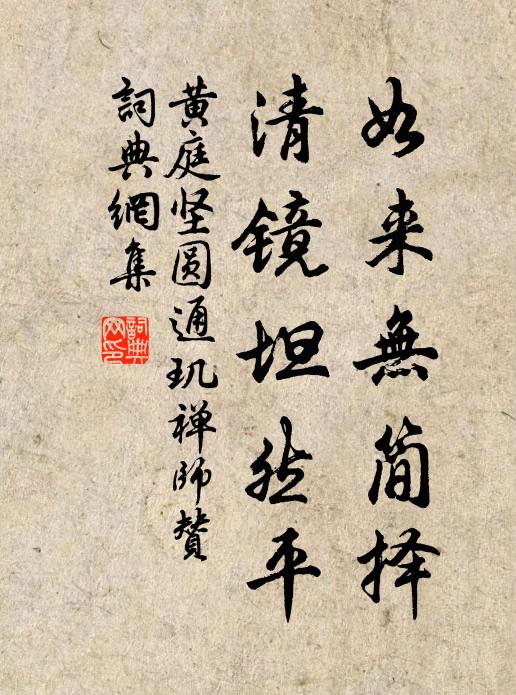 如来無简择
清镜坦然平
黄庭坚圆通玑禅师赞
詞典網集
詞典
网印